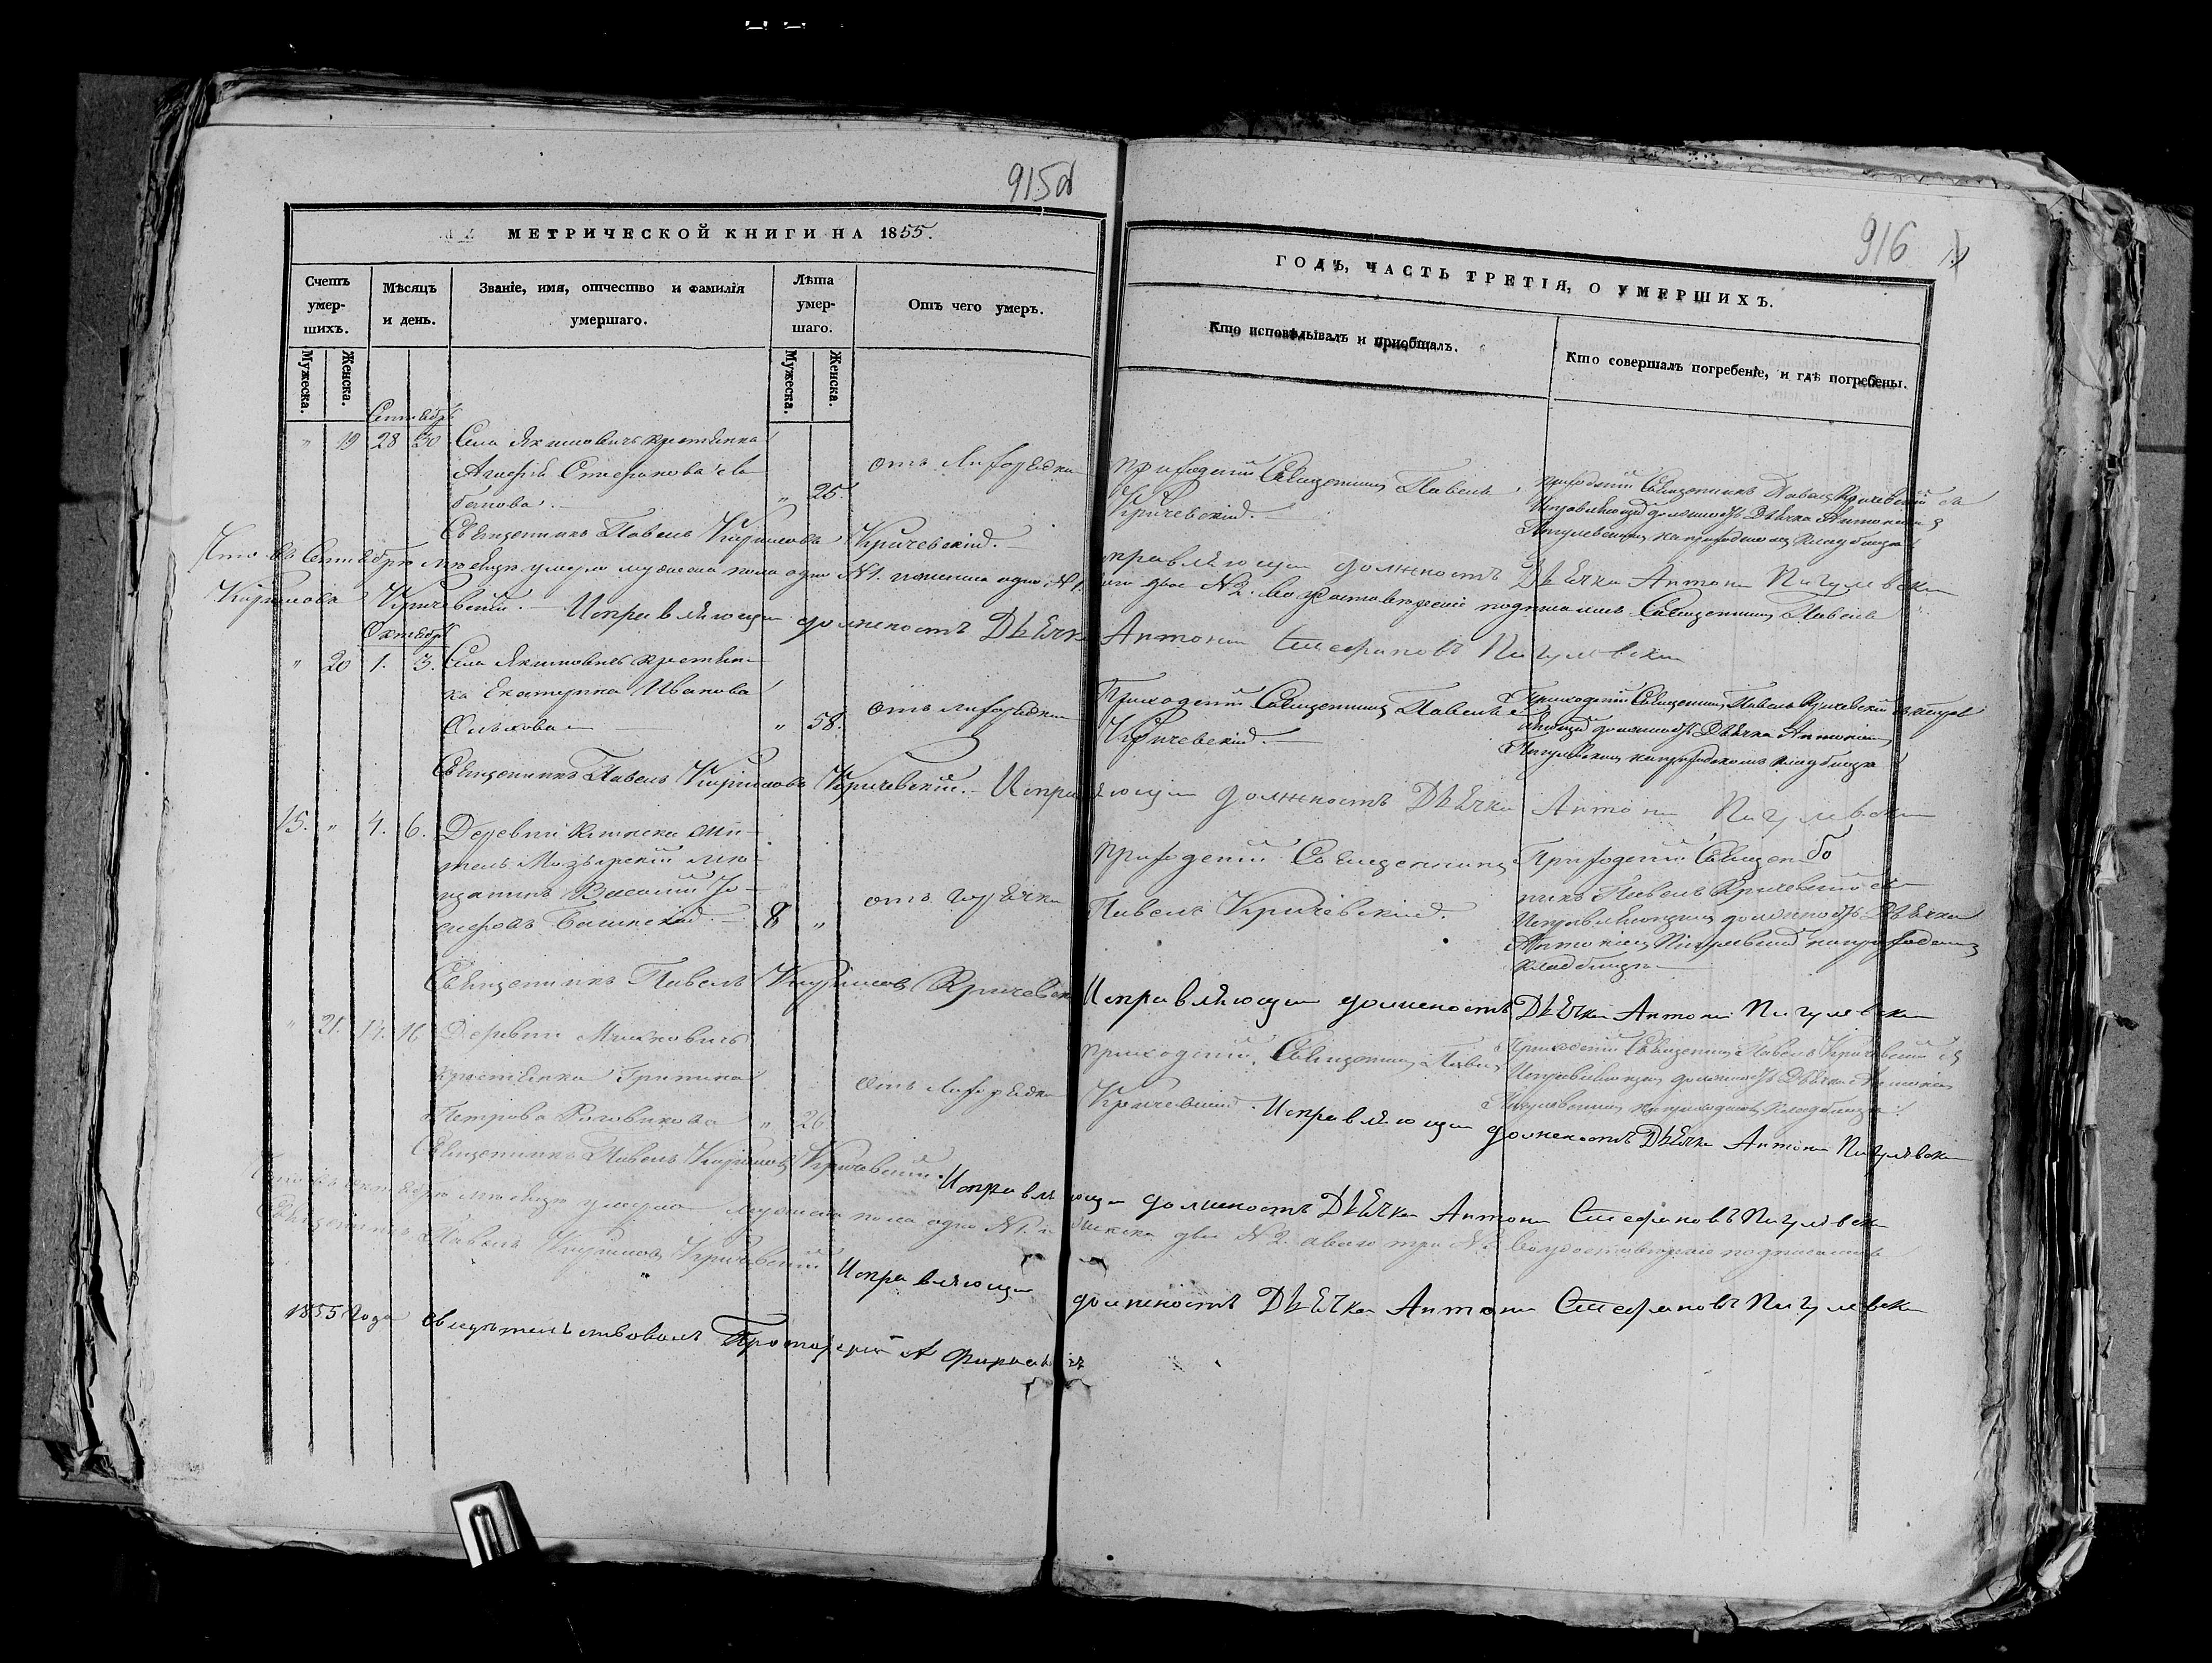 915об
МЕТРИЧЕСКОЙ КНИГИ НА 1855.
Счетъ умер-шихъ.
Мѣсяцъ и день.
Званіе, имя, отчество и фамилія умершаго.
Лѣта умер-шаго.
Отъ чего умеръ.
Мужеска.
Женска.
Мужеска.
Женска.
916
ГОДЪ, ЧАСТЬ ТРЕТІЯ, О УМЕРШИХЪ.
Кто исповѣдывалъ и пріобщалъ.
Кто совершалъ погребеніе, и гдѣ погребены.
Сентябрь
" 19 28 30 Села Якимовичъ крестьянка
Стефанова
" 25.
отъ лихорадки
приходскій Священникъ Павелъ
Кричевскій.
приходскій Священникъ Павелъ Кричевскій съ
Исправляющимъ должность Дьячка Антоніемъ
Пигулевскимъ на приходскомъ кладбищѣ
Священникъ Павелъ Кириловъ Кричевскій.
Исправляющій должность Дьячка Антоній Пигулевскій
Что въ Сентябрѣ мѣсяцѣ умерло мужеска пола одно №1. женска одно №1. двое №2. въ удостовѣреніе подписались Священникъ Павелъ
Кириловъ Кричевскій. — Исправляющій должность Дьячка Антоній Стефановъ Пигулевскій
Октябрь
" 20 1. 3. Села Якимовичъ крестьян-
ка Екатерина Иванова
" 58.
отъ лихорадки
Приходскій Священникъ Павелъ
Кричевскій. —
Приходскій Священникъ Павелъ Кричевскій съ исправ
ляющимъ должность Дьячка Антоніемъ
Пигулевскимъ на приходскомъ кладбищѣ
Священникъ Павелъ Кириловъ Кричевскій. — Исправляющій должность Дьячка Антоній Пигулевскій
15. " 4. 6. Деревни жи-
тель Мозырскій мѣ-
щанинъ Василій Іо-
сифовъ
8 "
отъ горячки
приходскій Священникъ
Павелъ Кричевскій.
Приходскій Священ
никъ Павелъ Кричевскій съ
Исправляющимъ должность Дьячка
Антоніемъ Пигулевскимъ на приходскомъ
кладбищѣ —
Священникъ Павелъ Кириловъ Кричевскій Исправляющій должность Дьячка Антоній Пигулевскій
" 21. 14. 16 Деревни
крестьянка
Петрова
" 26
отъ лихорадки
приходскій Священникъ Павелъ
Кричевскій.
Приходскій Священникъ Павелъ Кричевскій съ
Исправляющимъ должность Дьячка Антоніемъ
Пигулевскимъ на приходскомъ кладбищѣ.
Священникъ Павелъ Кириловъ Кричевскій. Исправляющій должность Дьячка Антоній Пигулевскій
Что въ октябрѣ мѣсяцѣ умерло мужеска пола одно №1. женска двѣ №2. а всего три № въ удостовѣреніе подписались
Исправляющій должность Дьячка Антоній Стефановъ Пигулевскій
Священникъ Павелъ Кириловъ Кричевскій
Исправляющій должность Дьячка Антоній Стефановъ Пигулевскій
1855 года свидѣтельствовалъ Протоіерей